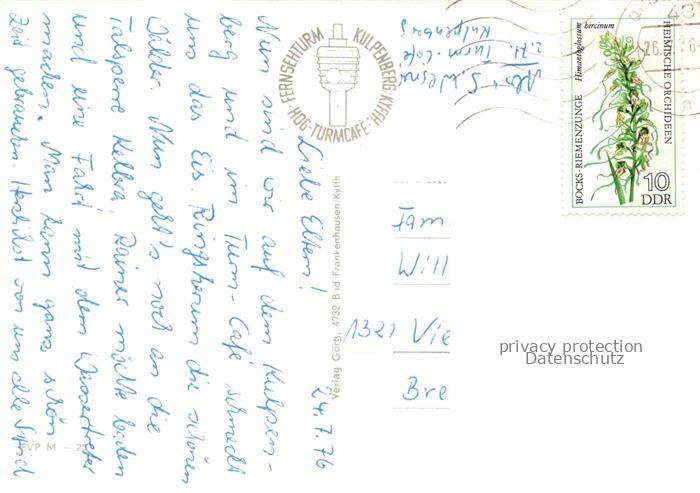 24.7.76
Liebe Eltern!
Nun sind wir auf dem Kulpen-
berg und im Turm-Café schmeckt
uns das Eis. Ringsherum die schönen
Wälder. Nun geht's noch an die
Talsperre Kelbra, Rainer möchte baden
und eine Fahrt mit dem Wassertreter
machen. Man kann ganz schön
Zeit gebrauchen. Herzlichst von uns alle
FERNSEHTURM KULPENBERG KYFFH.
HOG-TURMCAFÉ
Abs.: S.
z. Zt. Turm-Café
Kulpenberg
Verlag Görtz, 4732 Bad Frankenhausen/Kyffh
EVP M -,25
Fam
Will
1321 Vie
Bre
HEIMISCHE ORCHIDEEN
Himantoglossum hircinum
BOCKS-RIEMENZUNGE
10
DDR
privacy protection
Datenschutz